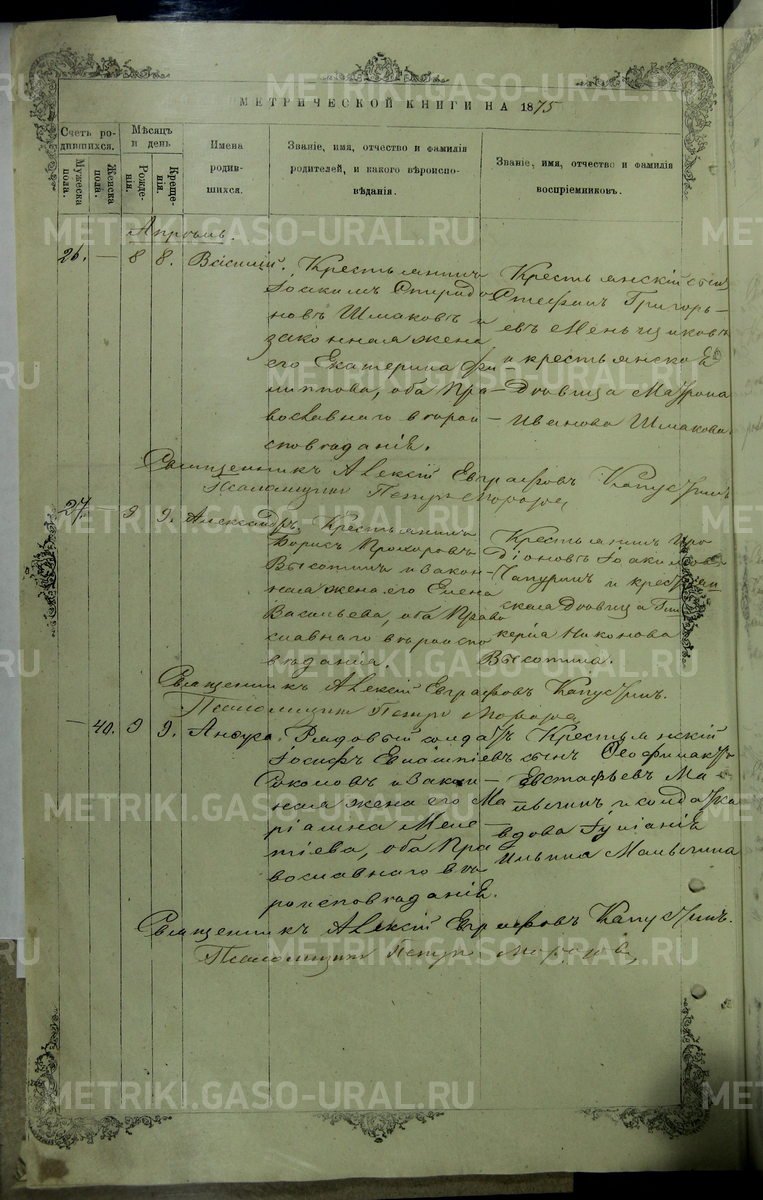 METRIKI.GASO-URAL.RU
МЕТРИЧЕСКОЙ КНИГИ НА 1875
Счетъ родившихся.
Мужеска пола.
Женска пола.
Мѣсяцъ и день
Рожденія.
Крещенія.
Имена родившихся.
Званіе, имя, отчество и фамилія родителей, и какого вѣроисповѣданія.
Званіе, имя, отчество и фамилія воспріемниковъ.
Апрѣль.
26. — 8 8. Василій.
Крестьянинъ
Іоакимъ Спиридо
новъ Шмаковъ и
законная жена
его Екатерина Фи
липпова, оба Пра
вославнаго вѣрои
сповѣданія.
Крестьянскій сынъ
Стефанъ Григорь-
евъ Меньщиковъ
и крестьянская
дѣвица Матрона
Иванова Шмакова.
Священникъ Алексій Евграфовъ Капустинъ
Псаломщикъ Петръ
27. — 9 9. Александръ,
Крестьянинъ
Борисъ Прохоровъ
Высотинъ и закон-
ная жена его Елена
Васильева, оба Право
славнаго вѣроиспо
вѣданія.
Крестьянинъ Иро
діоновъ Іоакимовъ
Чапуринъ и крестьян
ская дѣвица Гли
керія Никонова
Высотина.
Священникъ Алексій Евграфовъ Капустинъ.
Псаломщикъ Петръ
— 40. 9 9. Анѳуса.
Рядовый солдатъ
Іосифъ
Соколовъ и закон
ная жена его Ма
ріамна Меле
тіева, оба Пра
вославнаго вѣ
роисповѣданія.
Крестьянскій
сынъ Ѳеофилактъ
Евстафьевъ Ма
льгинъ и солдатка
вдова Іуліанія
Ильина Мальгина
Священникъ Алексій Евграфовъ Капустинъ.
Псаломщикъ Петръ